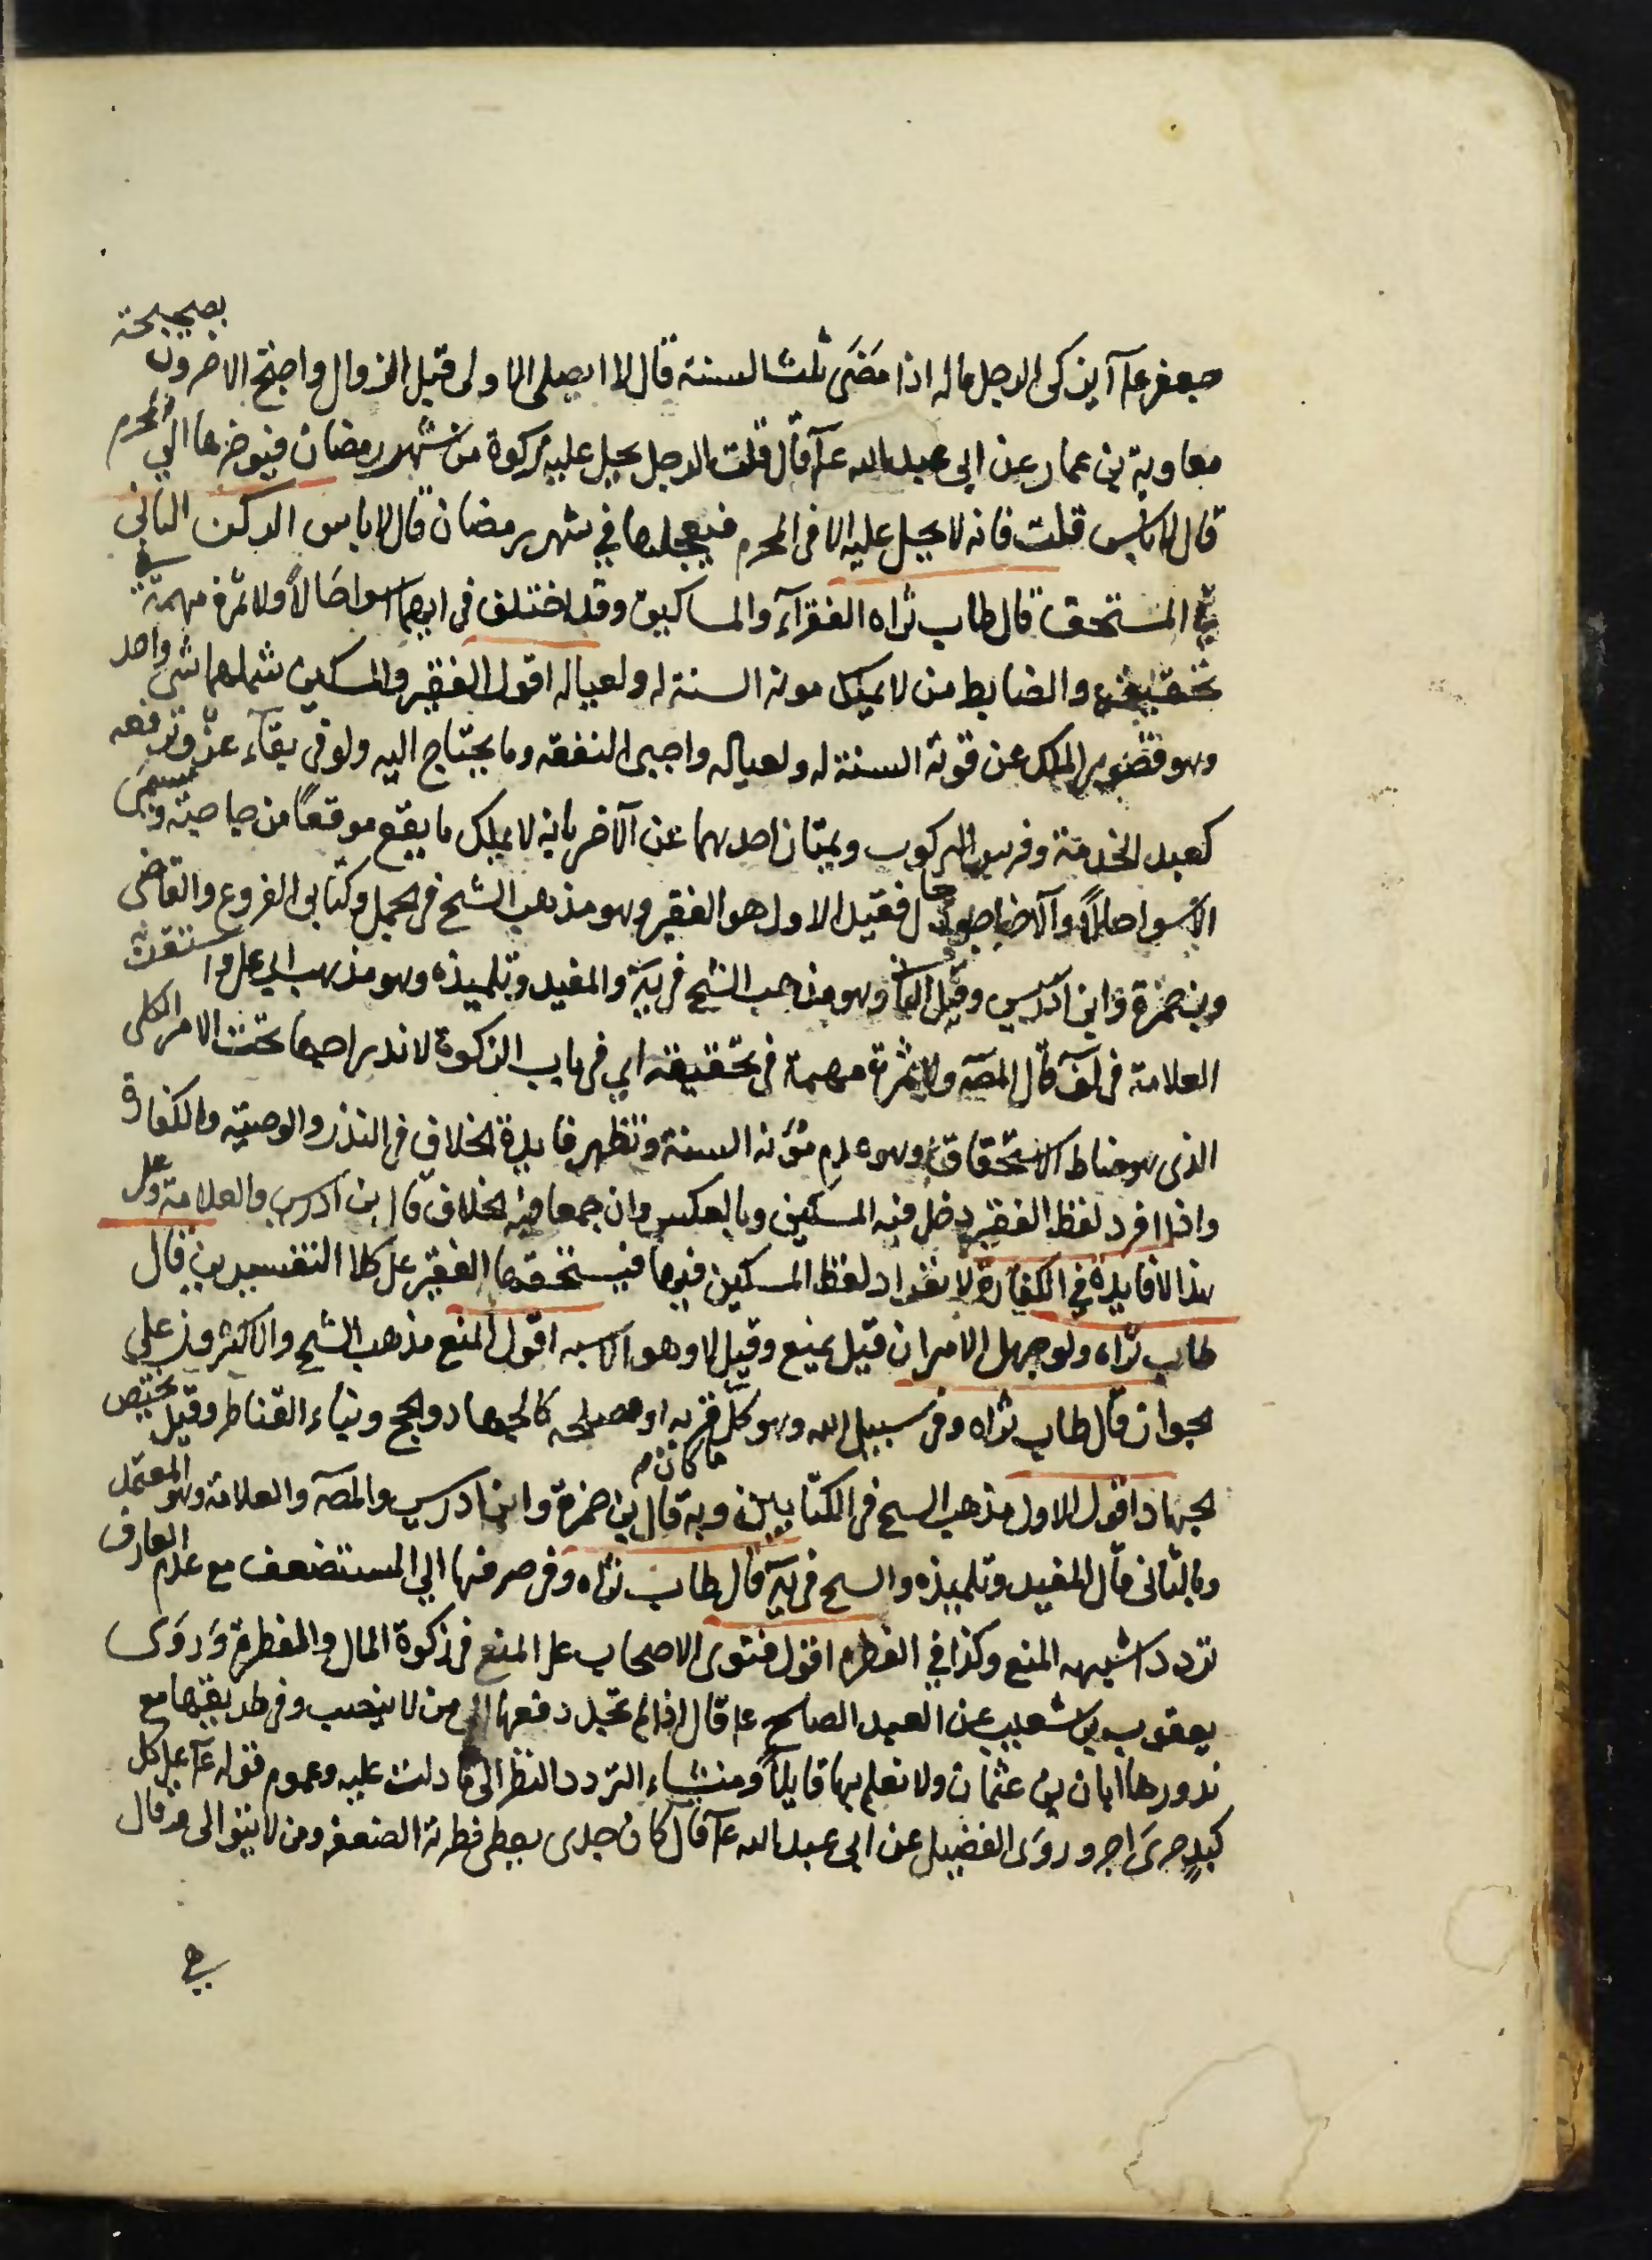 جعفر عآ أيزكى الرجل ماله اذا مَضَى ثلث السنة قال لا ا يصلى الاولى قبل الزوال واحتج الاخرون بصحيحة
معاوية بن عمار عن ابى عبد الله عآ قال قلت الرجل يحل عليه زكوة من شهر رمضان فيوخرها الي المحرم
قال لا باس قلت فانه لا يحل عليه الا فى المحرم فيعجلها في شهر رمضان قال لا باس الركن الثانى
في المستحق قال طاب ثراه الفقرآء والمساكين وقد اختلف فى ايهما اسوا حَالاً ولا ثمرة مهمة في
تحقيقه والضابط من لا يملك مونه السنة له ولعياله اقول الفقير والمسكين شملهما شى واحد
وهو قصور الملك عن قوته السنة له ولعياله واجبى النفقه وما يحتاج اليه ولو فى بقآء عزّ وترفعه
كعبد الخدمة وفرس الركوب ويمتاز احدهما عن الآخر بانه لا يملك ما يقع موقعاً من حاجته ويسمى
الاسوا حالاً والآخر اجود حالا فقيل الاول هو الفقير وهو مذهب الشيخ فى الجمل وكتابى الفروع والقاضى
وبن حمزة وابن ادريس وقيل الثانى وهو مذهب الشيخ فى يَة والمفيد وتلميذه وهو مذهب ابى على واستقربه
العلامة فى لف قال المصَه ولا ثمرة مهمة فى تحقيقه اي فى باب الزكوة لاندراجهما تحت الامر الكلى
الذى هو مناط الاستحقاق وهو عدم مؤنه السنة وتظهر فايدة الخلاف فى النذر والوصيّه والكفارة
واذا افرد لفظ الفقير دخل فيه المسكين وبالعكس وان جمعا فيه الخلاف قال بن ادريس والعلامة وعلى
هذا لا فايدة في الكفارة لانفراد لفظ المسكين فيها فيستحقها الفقير على كلا التفسيرين قال
طاب ثراه ولو جهل الامران قيل يمنع وقيل لا وهو اشبه اقول المنع مذهب الشيخ والاكثرون على
الجواز قال طاب ثراه وفى سبيل الله وهو كلّ ما كان قربه او مصلحه كالجهاد والحج وبناء القناطر وقيل يختص
الجهاد اقول الاول مذهب الشيخ فى الكتابين وبه قال بن حمزة وابن ادريس والمصَه والعلامة وهو المعتمد
وبالثانى قال المفيد وتلميذه والشيخ فى يَة قال طاب ثراه وفى صرفها الي المستضعف مع عدم العارف
تردد اشبهه المنع وكذا في الفطره اقول فتوى الاصحاب على المنع فى زكوة المال والفطرة وَروَى
يعقوب بن شعيب عن العبد الصالح عآ قال اذا لم تجد دفعها الى من لا ينصب وفى طريقها مع
ندورها ابان بن عثمان ولا نعلم بها قايلاً ومنشاء التردد النظر الى ما دلت عليه وعموم قوله عآ على كل
كبدٍ حرىَ اجر وروَى الفضيل عن ابى عبد الله عآ قال كان جدى يعطى فطرته الضعفه ومن لا يتوالى وقال
في